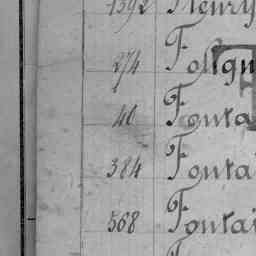 1392 Fleury
274 Folign
40 Fonta
384 Fontai
568 Fontai